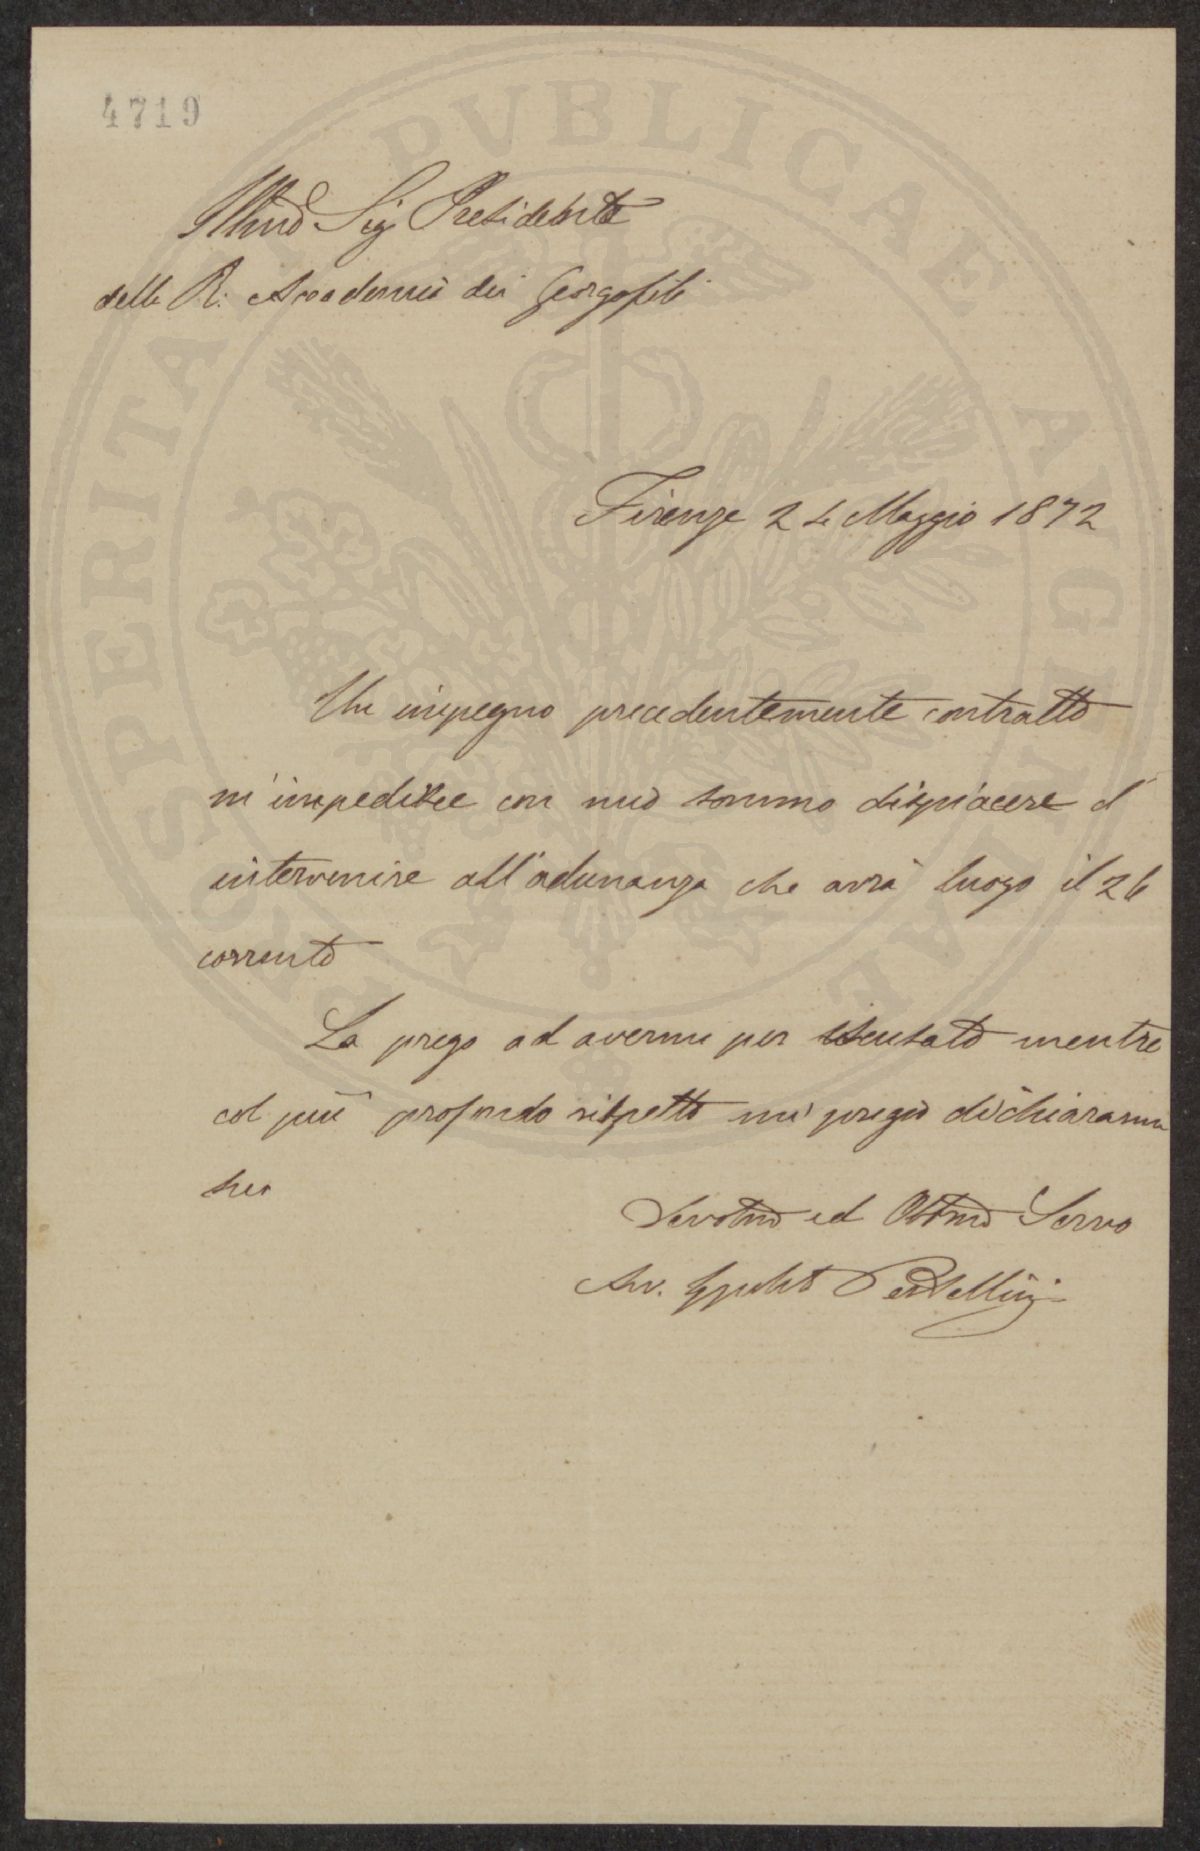 4719
PROSPERITATI PVBLICAE AVGENDAE
Illmo Sig Presidente
della R: Accademia dei Georgofili
Firenze 24 Maggio 1872
Un impegno precedentemente contratto
m'impedisce con mio sommo dispiacere d'
intervenire all'adunanza che avrà luogo il 26
corrente
La prego ad avermi per iscusato mentre
col più profondo rispetto mi pregio dichiararmi
Suo
Devotmo ed Obbmo Servo
Av. Ippolito